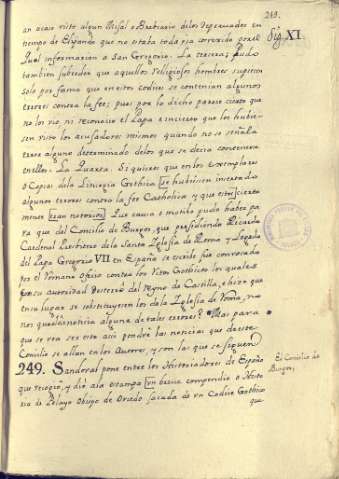 249.
Sig XI.
an acaso visto algun Misal o Breviario de los depravados en
tiempo de Elipando que no estaba todavia corregido por el
Qual informarian a San Gregorio. La tercera; Pudo
tambien suceder que aquellos Religiosos hombres supiesen
solo por fama que en estos codices se contenian algunos
errores contra la fee; pues por lo dicho parece cierto que
no los vio, ni reconocio el Papa e incierto que los hubie-
sen visto los acusadores mismos quando no se señala
error alguno determinado de los que se decia contenerse
en ellos. La Quarta. Si quiere que en los Exemplares
o Copias de la Liturgia Gothica se hubiesen insertado
algunos errores contra la fee Catholica y que esto cierta
mente sean notorios Que causa o motibo pudo haber pa
ra que del Concilio de Burgos, que presidiendo Ricardo
Cardenal Presbitero de la Santa Iglesia de Roma y Legado
del Papa Gregorio VII en España se escribe fue convocado
por el Romano Oficio contra los Ritos Gothicos los quales
por su autoridad desterrò del Reyno de Castilla, e hizo que
en su lugar se substituyesen los de la Iglesia de Roma, no
nos quedase noticia alguna de tales errores? Mas para
que se vea ser esto asi pondrè las noticias que de este
Concilio se allan en los Autores, y son las que se siguen
249. Sandoval pone entre los Historiadores de España
que recogiò, y diò a la estampa un breve compendio o Histo
ria de Pelayo Obispo de Oviedo sacada de un Codice Gothico
que
El Concilio de
Burgos.